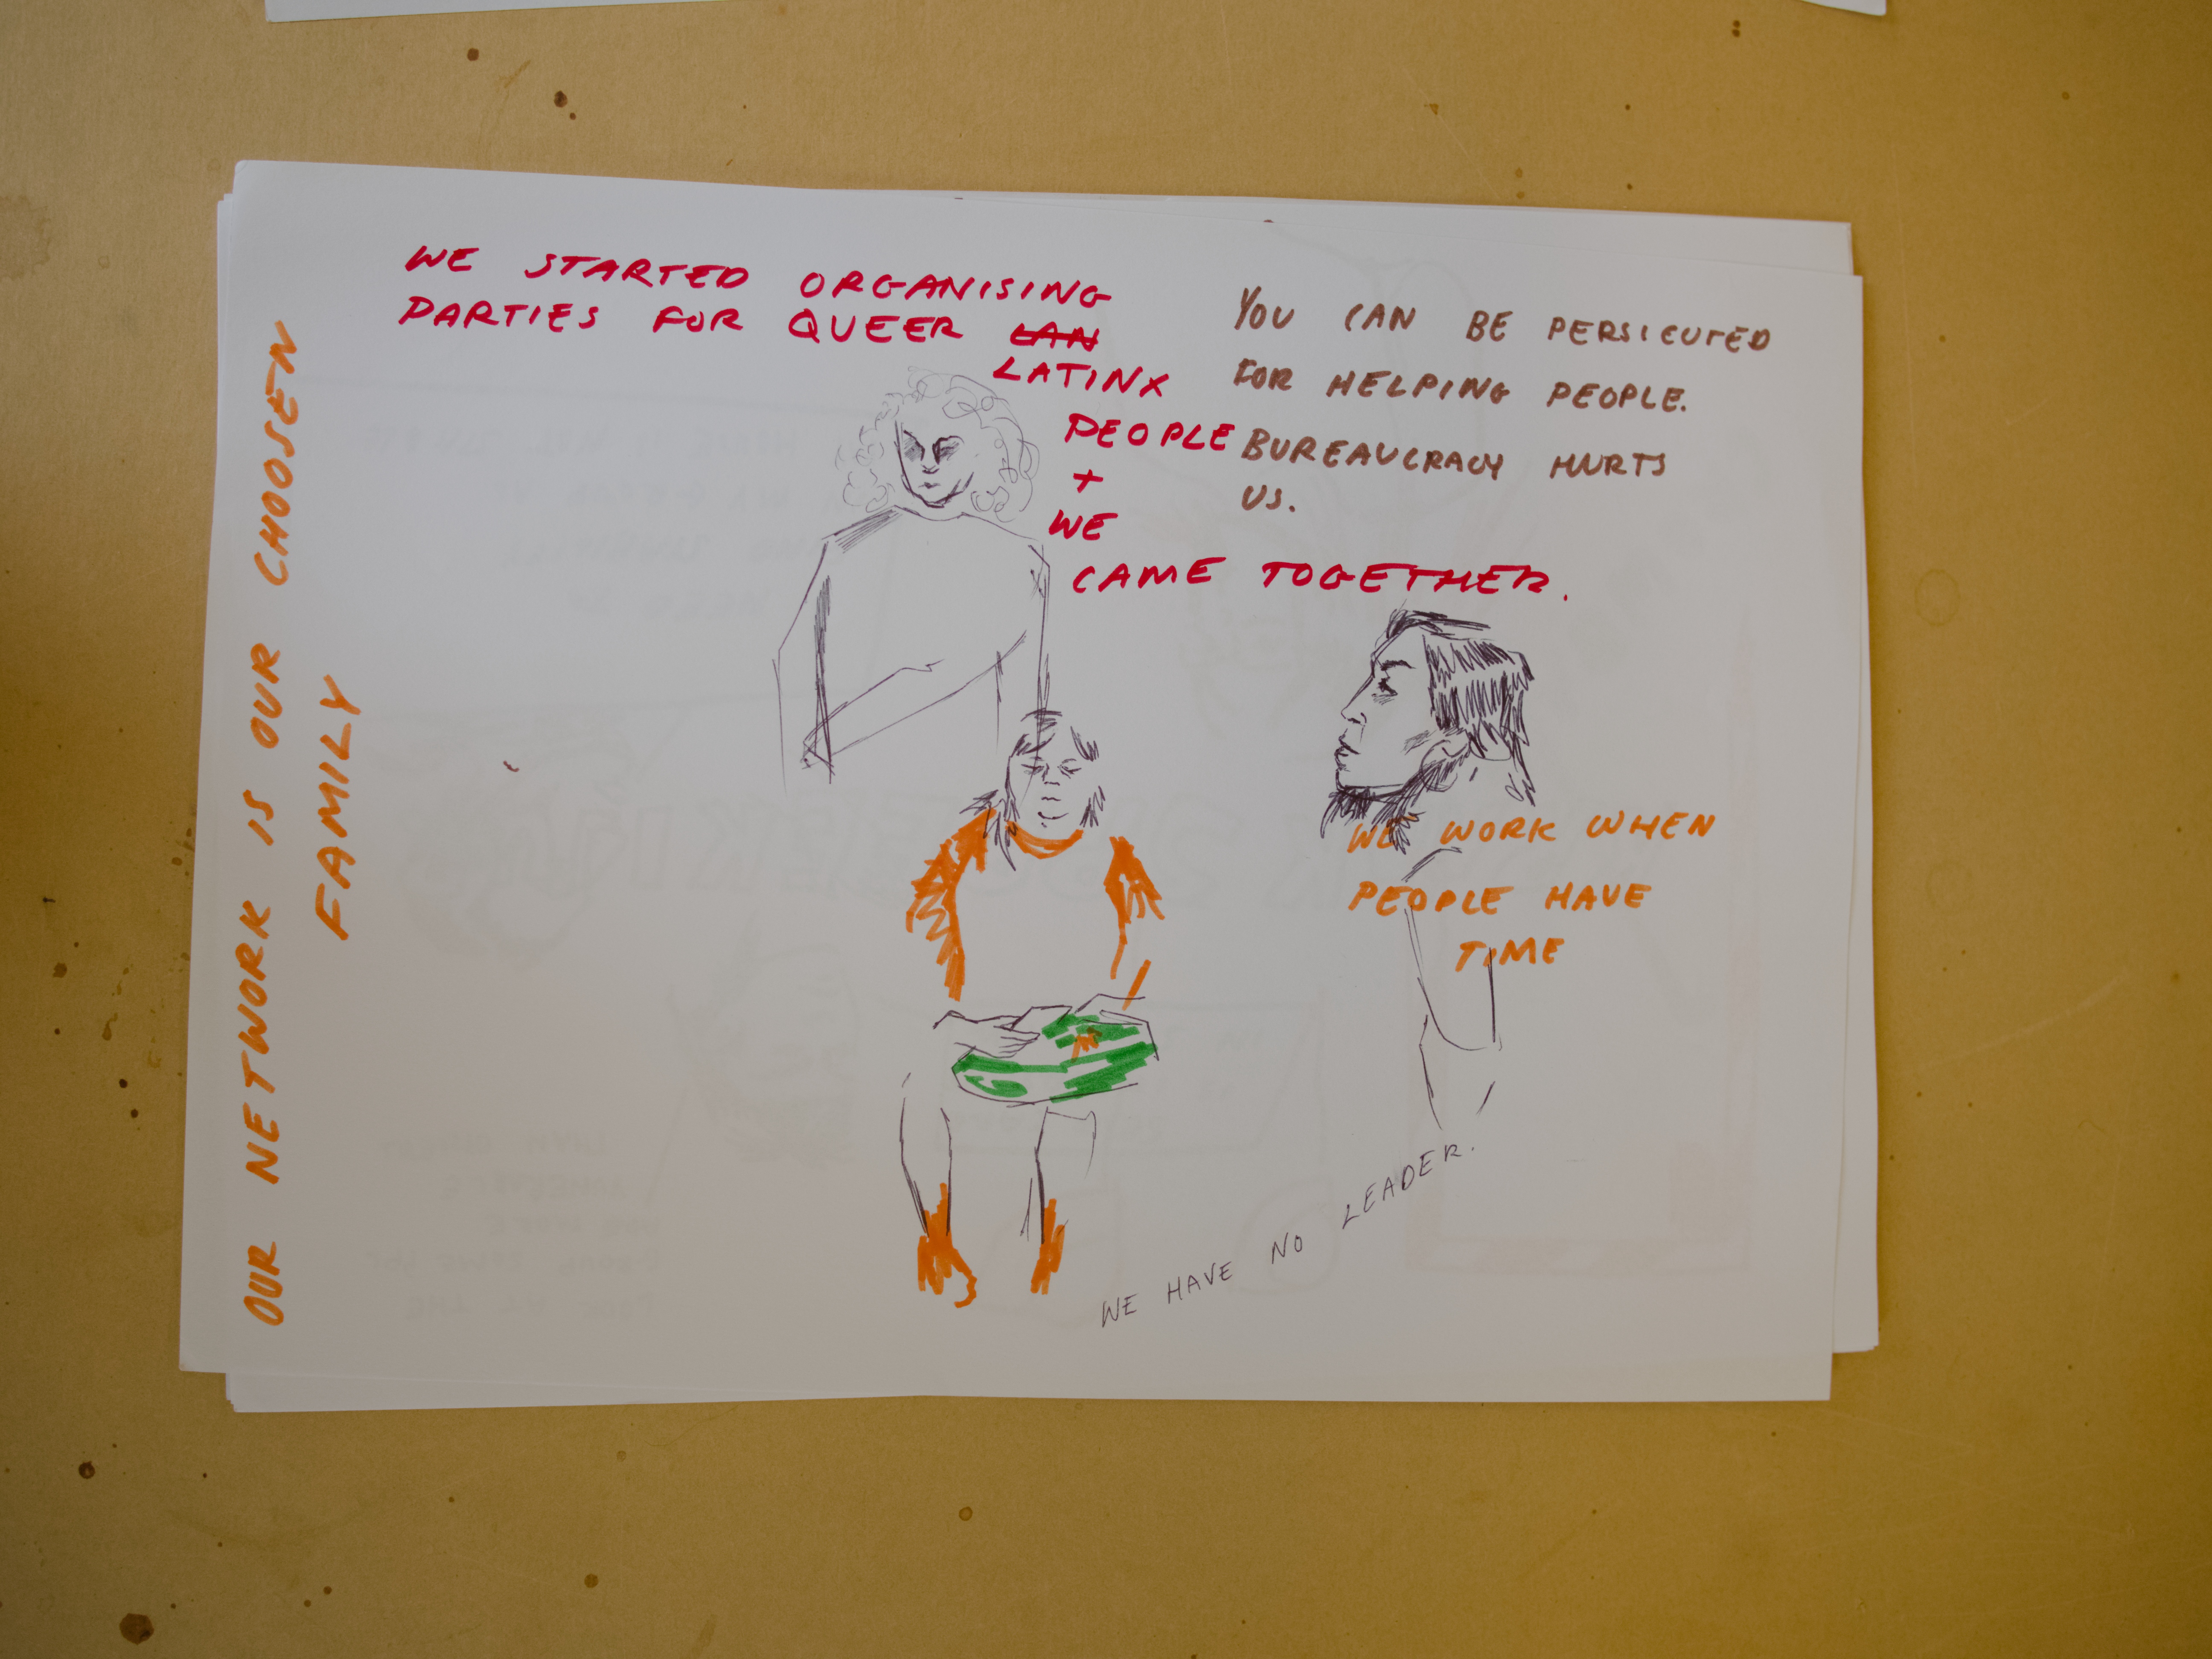 WE STARTED ORGANISING
PARTIES FOR QUEER LAN
LATINX
PEOPLE
+
WE
CAME TOGETHER.
YOU CAN BE PERSICUTED
FOR HELPING PEOPLE.
BUREAUCRACY HURTS
US.
OUR NETWORK IS OUR CHOOSEN
FAMILY
WE WORK WHEN
PEOPLE HAVE
TIME
WE HAVE NO LEADER.